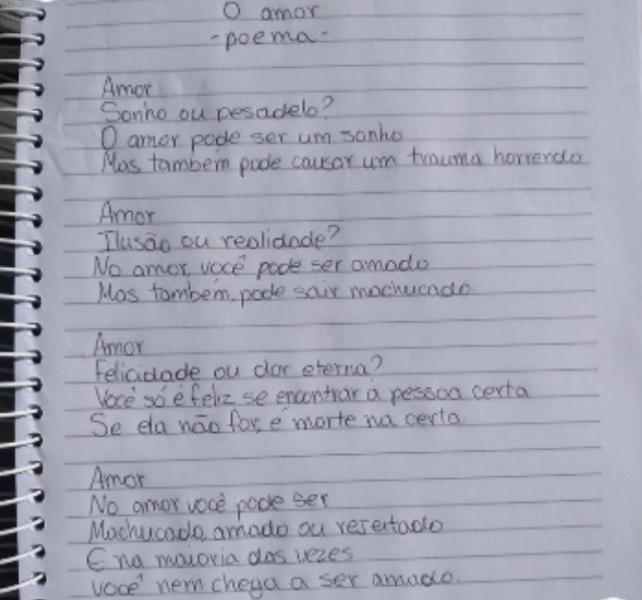 O amor
-poema-
Amor
Sonho ou pesadelo?
O amor pode ser um sonho
Mas também pode causar um trauma horrendo
Amor
Ilusão ou realidade?
No amor, você pode ser amado
Mas também, pode sair machucado.
Amor
Felicidade ou dor eterna?
Você só é feliz se encontrar a pessoa certa
Se ela não for, é morte na certa.
Amor
No amor você pode ser
Machucado, amado ou rejeitado
E na maioria das vezes
você nem chega a ser amado.